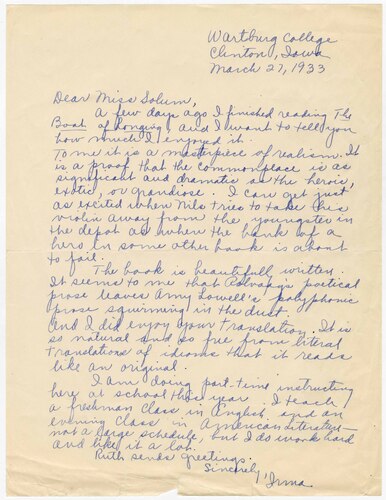 Wartburg College
Clinton, Iowa
March 27, 1933
Dear Miss Solum,
A few days ago I finished reading The
Boat of Longing, and I want to tell you
how much I enjoyed it.
To me it is a masterpiece of realism. It
is a proof that the commonplace is as
significant and dramatic as the heroic,
exotic, or grandiose. I can get just
as excited when Nils tries to take his
violin away from the youngster in
the depot as when the bank of a
hero in some other book is about
to fail.
The book is beautifully written.
It seems to me that Rolvaag's poetical
prose leaves Amy Lowell's polyphonic
prose squirming in the dust.
And I did enjoy your translation. It is
so natural and so free from literal
translations of idioms that it reads
like an original.
I am doing part-time instructing
here at school this year. I teach
a freshman class in English and an
evening class in American literature—
not a large schedule, but I do work hard
and like it a lot.
Ruth sends greetings.
Sincerely,
Irma